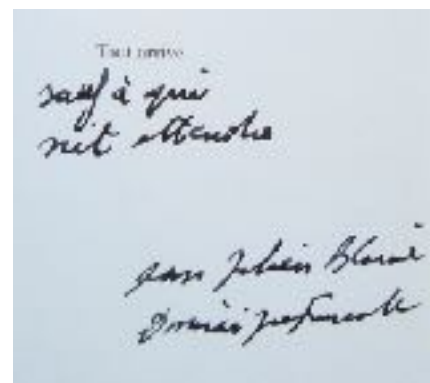 Tout arrive
sauf à qui
sait attendre
Julien Blaine